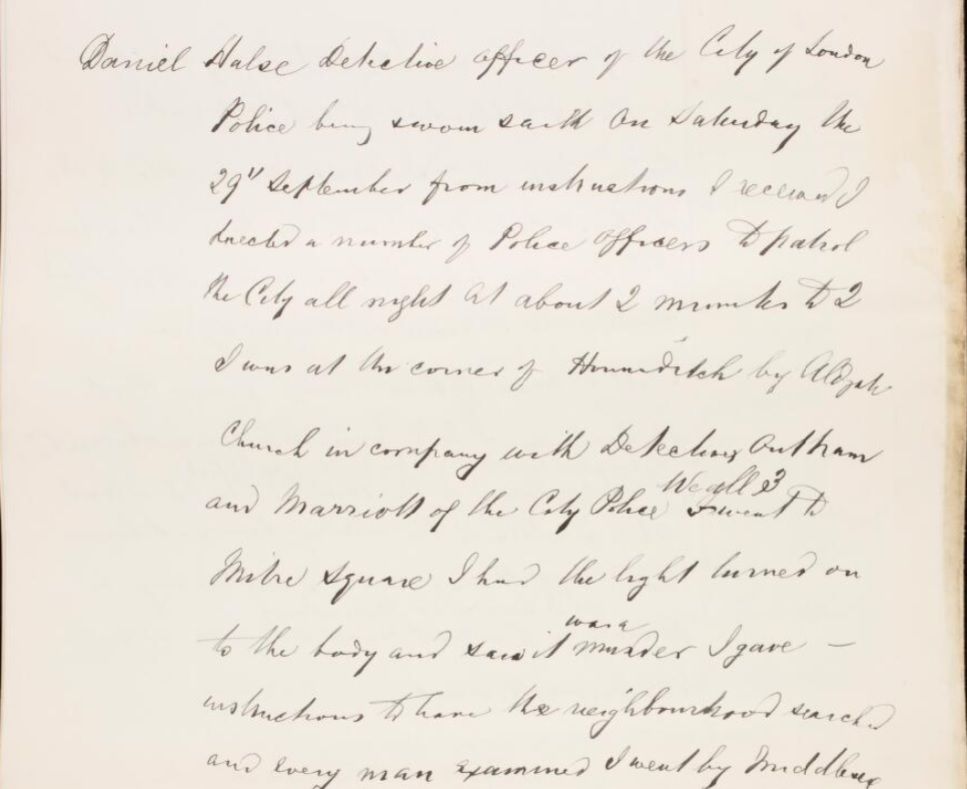 Daniel Halse Detective officer of the City of London
Police being sworn saith On Saturday the
29" September from instructions I received I
directed a number of Police officers to patrol
the City all night At about 2 minutes to 2
I was at the corner of Houndsditch by Aldgate
Church in company with Detectives Outram
and Marriott of the City Police
We all 3
went to
Mitre Square I had the light turned on
to the body and saw it was a murder I gave —
instructions to have the neighbourhood searched
and every man examined I went by Middlesex